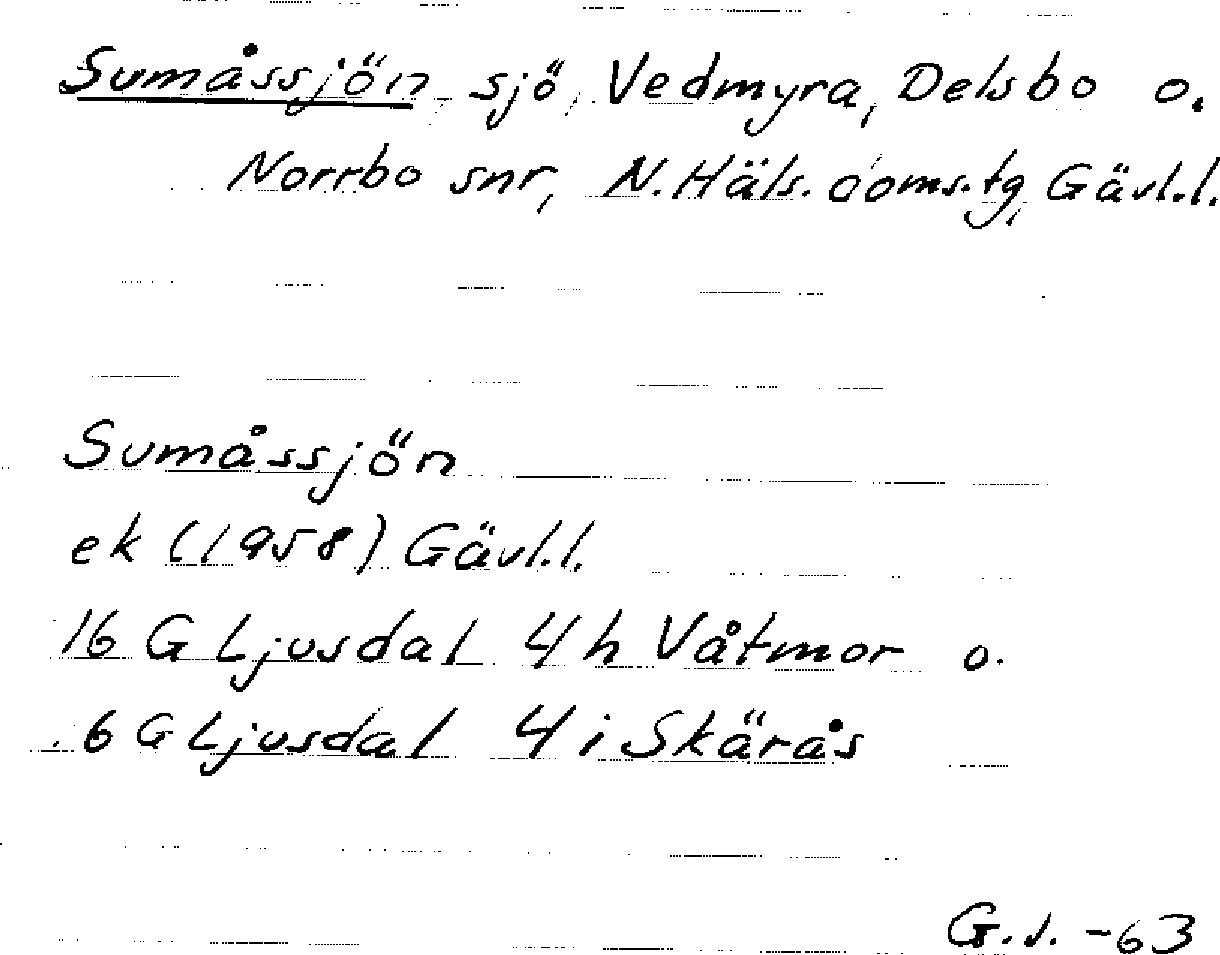 Sumåssjön sjö, Vedmyra, Delsbo o.
Norrbo snr, N. Häls. doms.tg, Gävl.l.
Sumåssjön
ek (1958) Gävl.l.
16 G Ljusdal 4 h Våtmor o.
6 G Ljusdal 4 i Skärås
G.J. -63